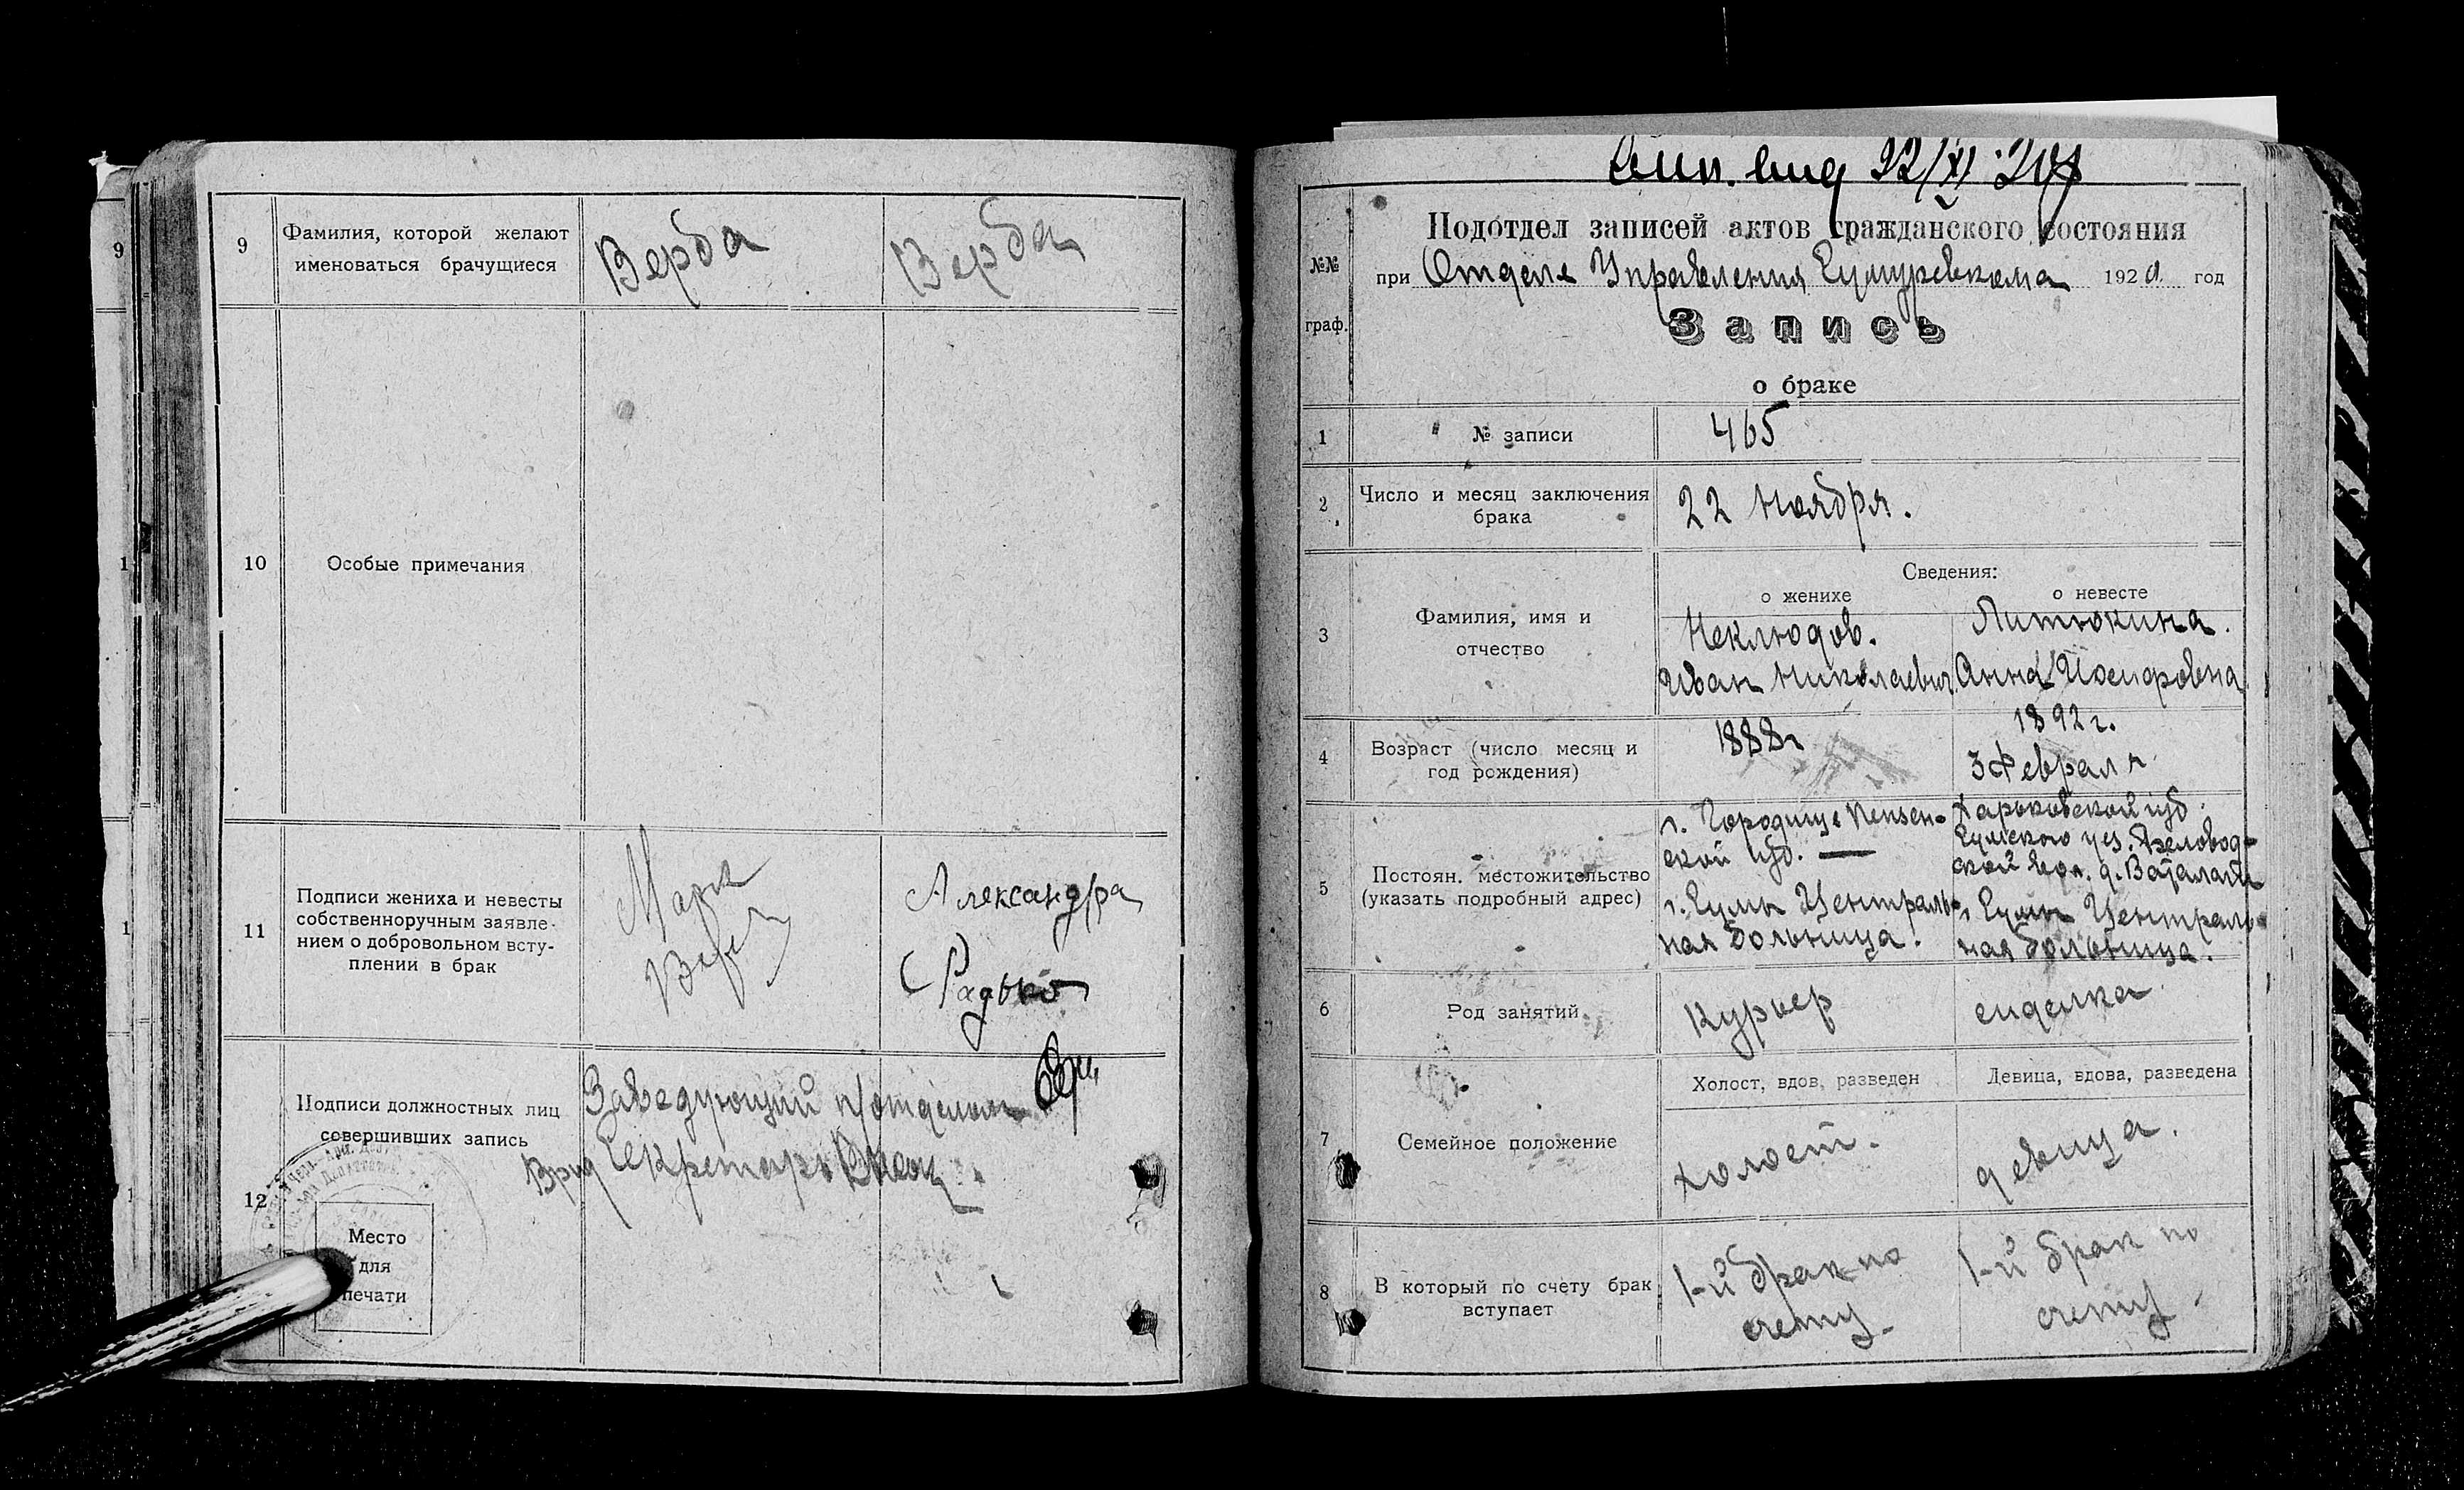 9 Фамилия, которой желают
именоваться брачущиеся
Верба Верба
10 Особые примечания
11 Подписи жениха и невесты
собственноручным заявле-
нием о добровольном всту-
плении в брак
Марк
Александра
Радько
12 Подписи должностных лиц
совершивших запись
Заведующий п/отделом
Врид Секретарь
Место
для
печати
вид 22/XI
№№
граф.
Подотдел записей актов гражданского состояния
при Отделе Управления Сумуревкома 1920 год
Запись
о браке
1 № записи 465
2 Число и месяц заключения
брака
22 Ноября.
Сведения:
о женихе о невесте
3 Фамилия, имя и
отчество
Неклюдов.
Иван Николаевич
Литюкина.
Анна Иосифовна
4 Возраст (число месяц и
год рождения)
1888г
1892 г.
3 Февраля
5 Постоян. местожительство
(указать подробный адрес)
г. Городище Пензен-
ской губ. —
г. Сумы Централь-
ная больница.
Харьковской губ.
Сумского уез.
ской вол. д.
г. Сумы Централь-
ная больница.
6 Род занятий
курьер
сиделка
7 Семейное положение
Холост, вдов, разведен
Девица, вдова, разведена
холост.
девица.
8 В который по счету брак
вступает
1-й брак по
счету
1-й брак по
счету